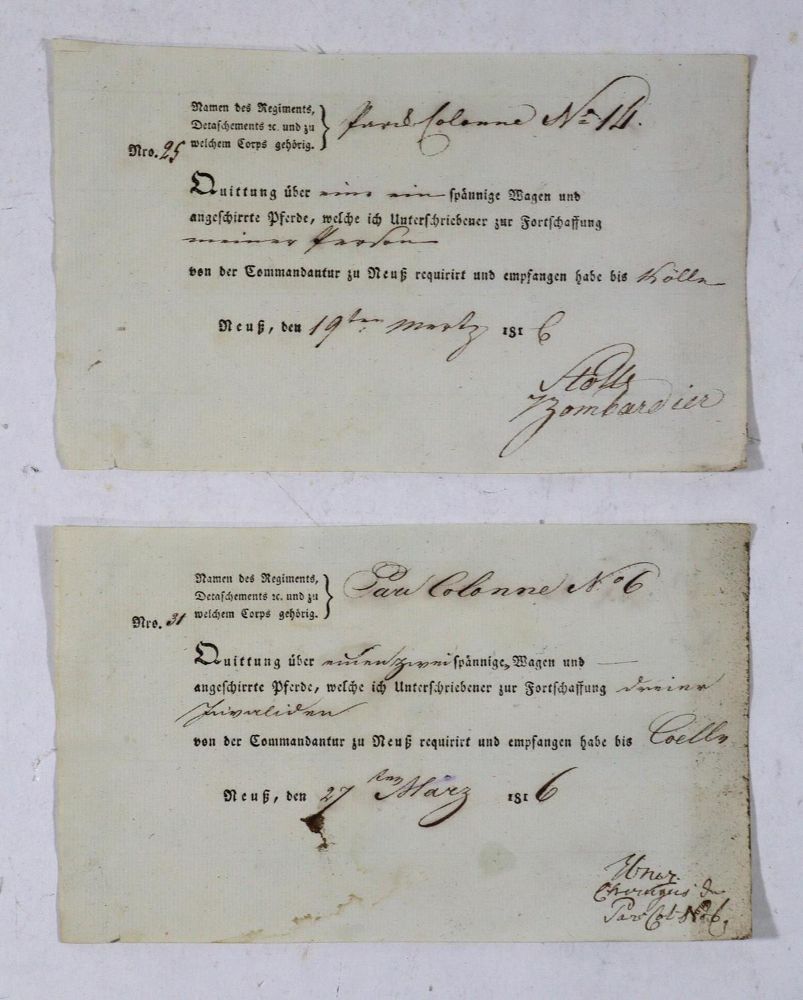 Namen des Regiments,
Detaschements ꝛc. und zu
welchem Corps gehörig.
Park Colonne No 14.
Nro. 25
Quittung über eine ein spännige Wagen und
angeschirrte Pferde, welche ich Unterschriebener zur Fortschaffung
meiner Person
von der Commandantur zu Neuß requirirt und empfangen habe bis Kölln
Neuß, den 19ten Mertz 1816
Bombardier
Namen des Regiments,
Detaschements ꝛc. und zu
welchem Corps gehörig.
Parc Colonne No 6
Nro. 31
Quittung über einen zwei spännige Wagen und
angeschirrte Pferde, welche ich Unterschriebener zur Fortschaffung dreier
Invaliden
von der Commandantur zu Neuß requirirt und empfangen habe bis Coelln
Neuß, den 27ten März 1816
Chirurgus der
Parc Col. No 6.